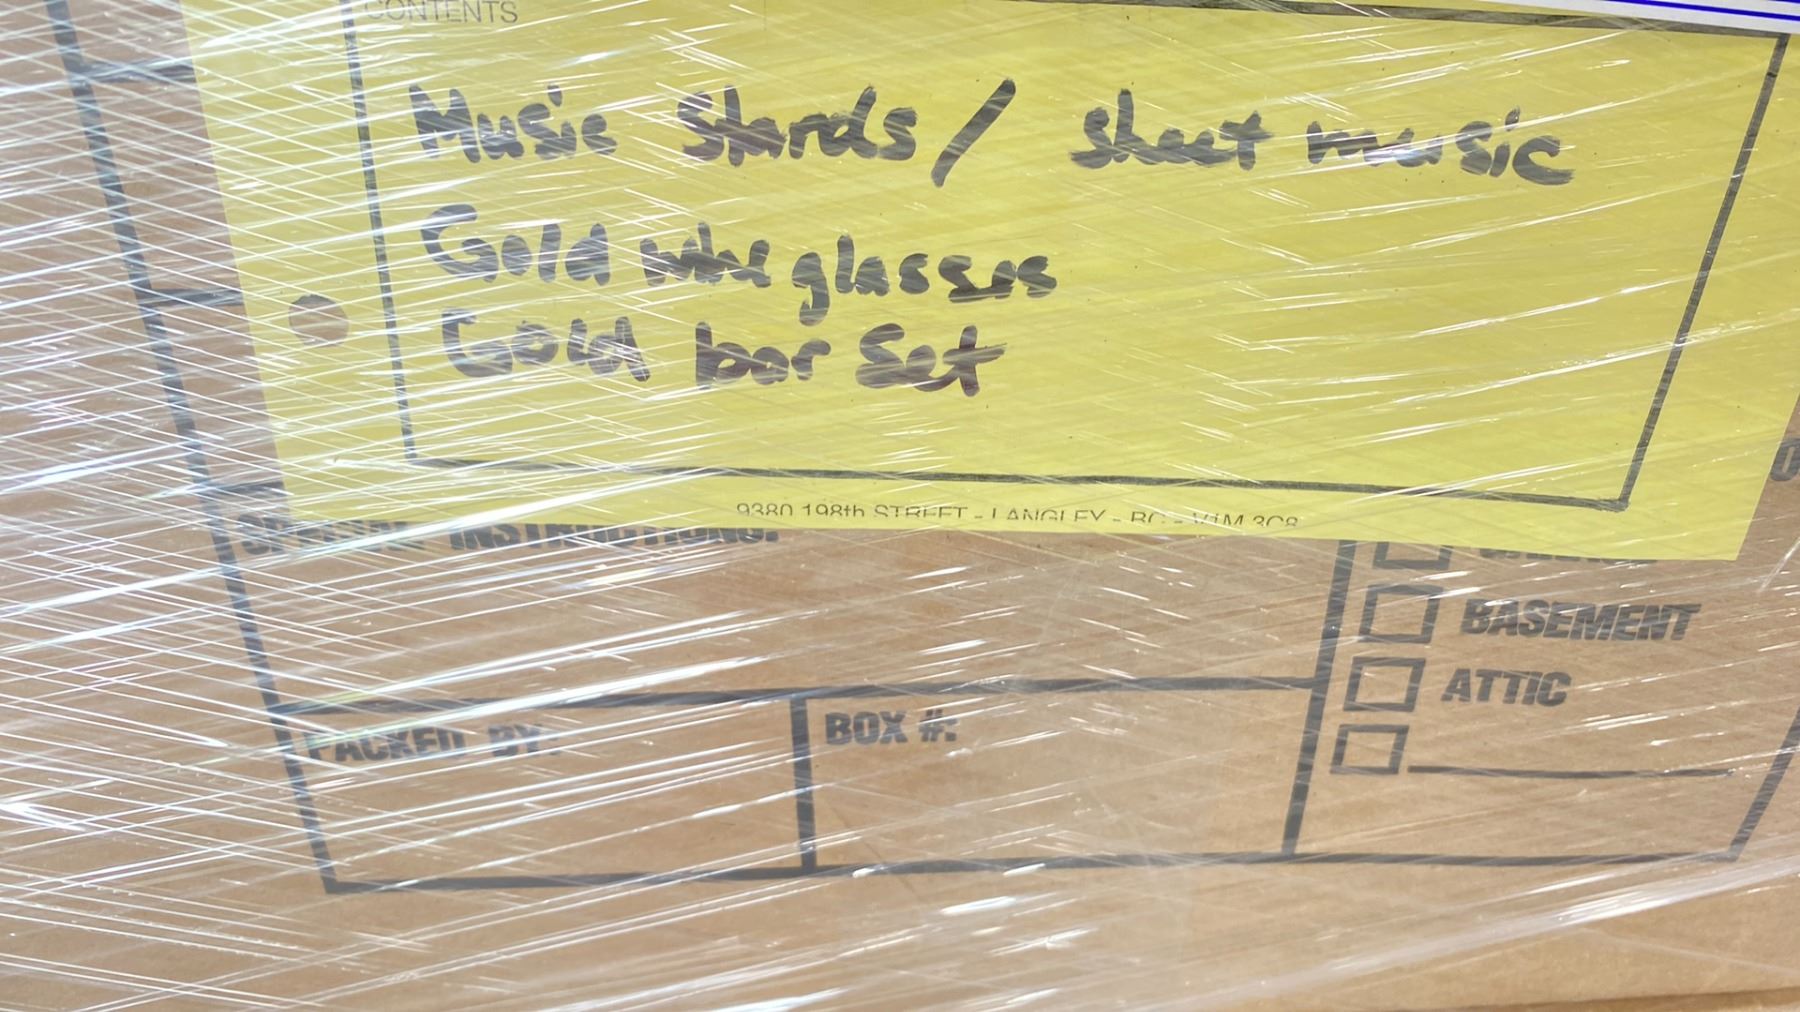 CONTENTS
Music Stands / sheet music
Gold wine glasses
Gold bar Set
9380 198th STREET - LANGLEY - BC - V1M 3C8
SPECIAL INSTRUCTIONS:
BASEMENT
ATTIC
PACKED BY:
BOX #: